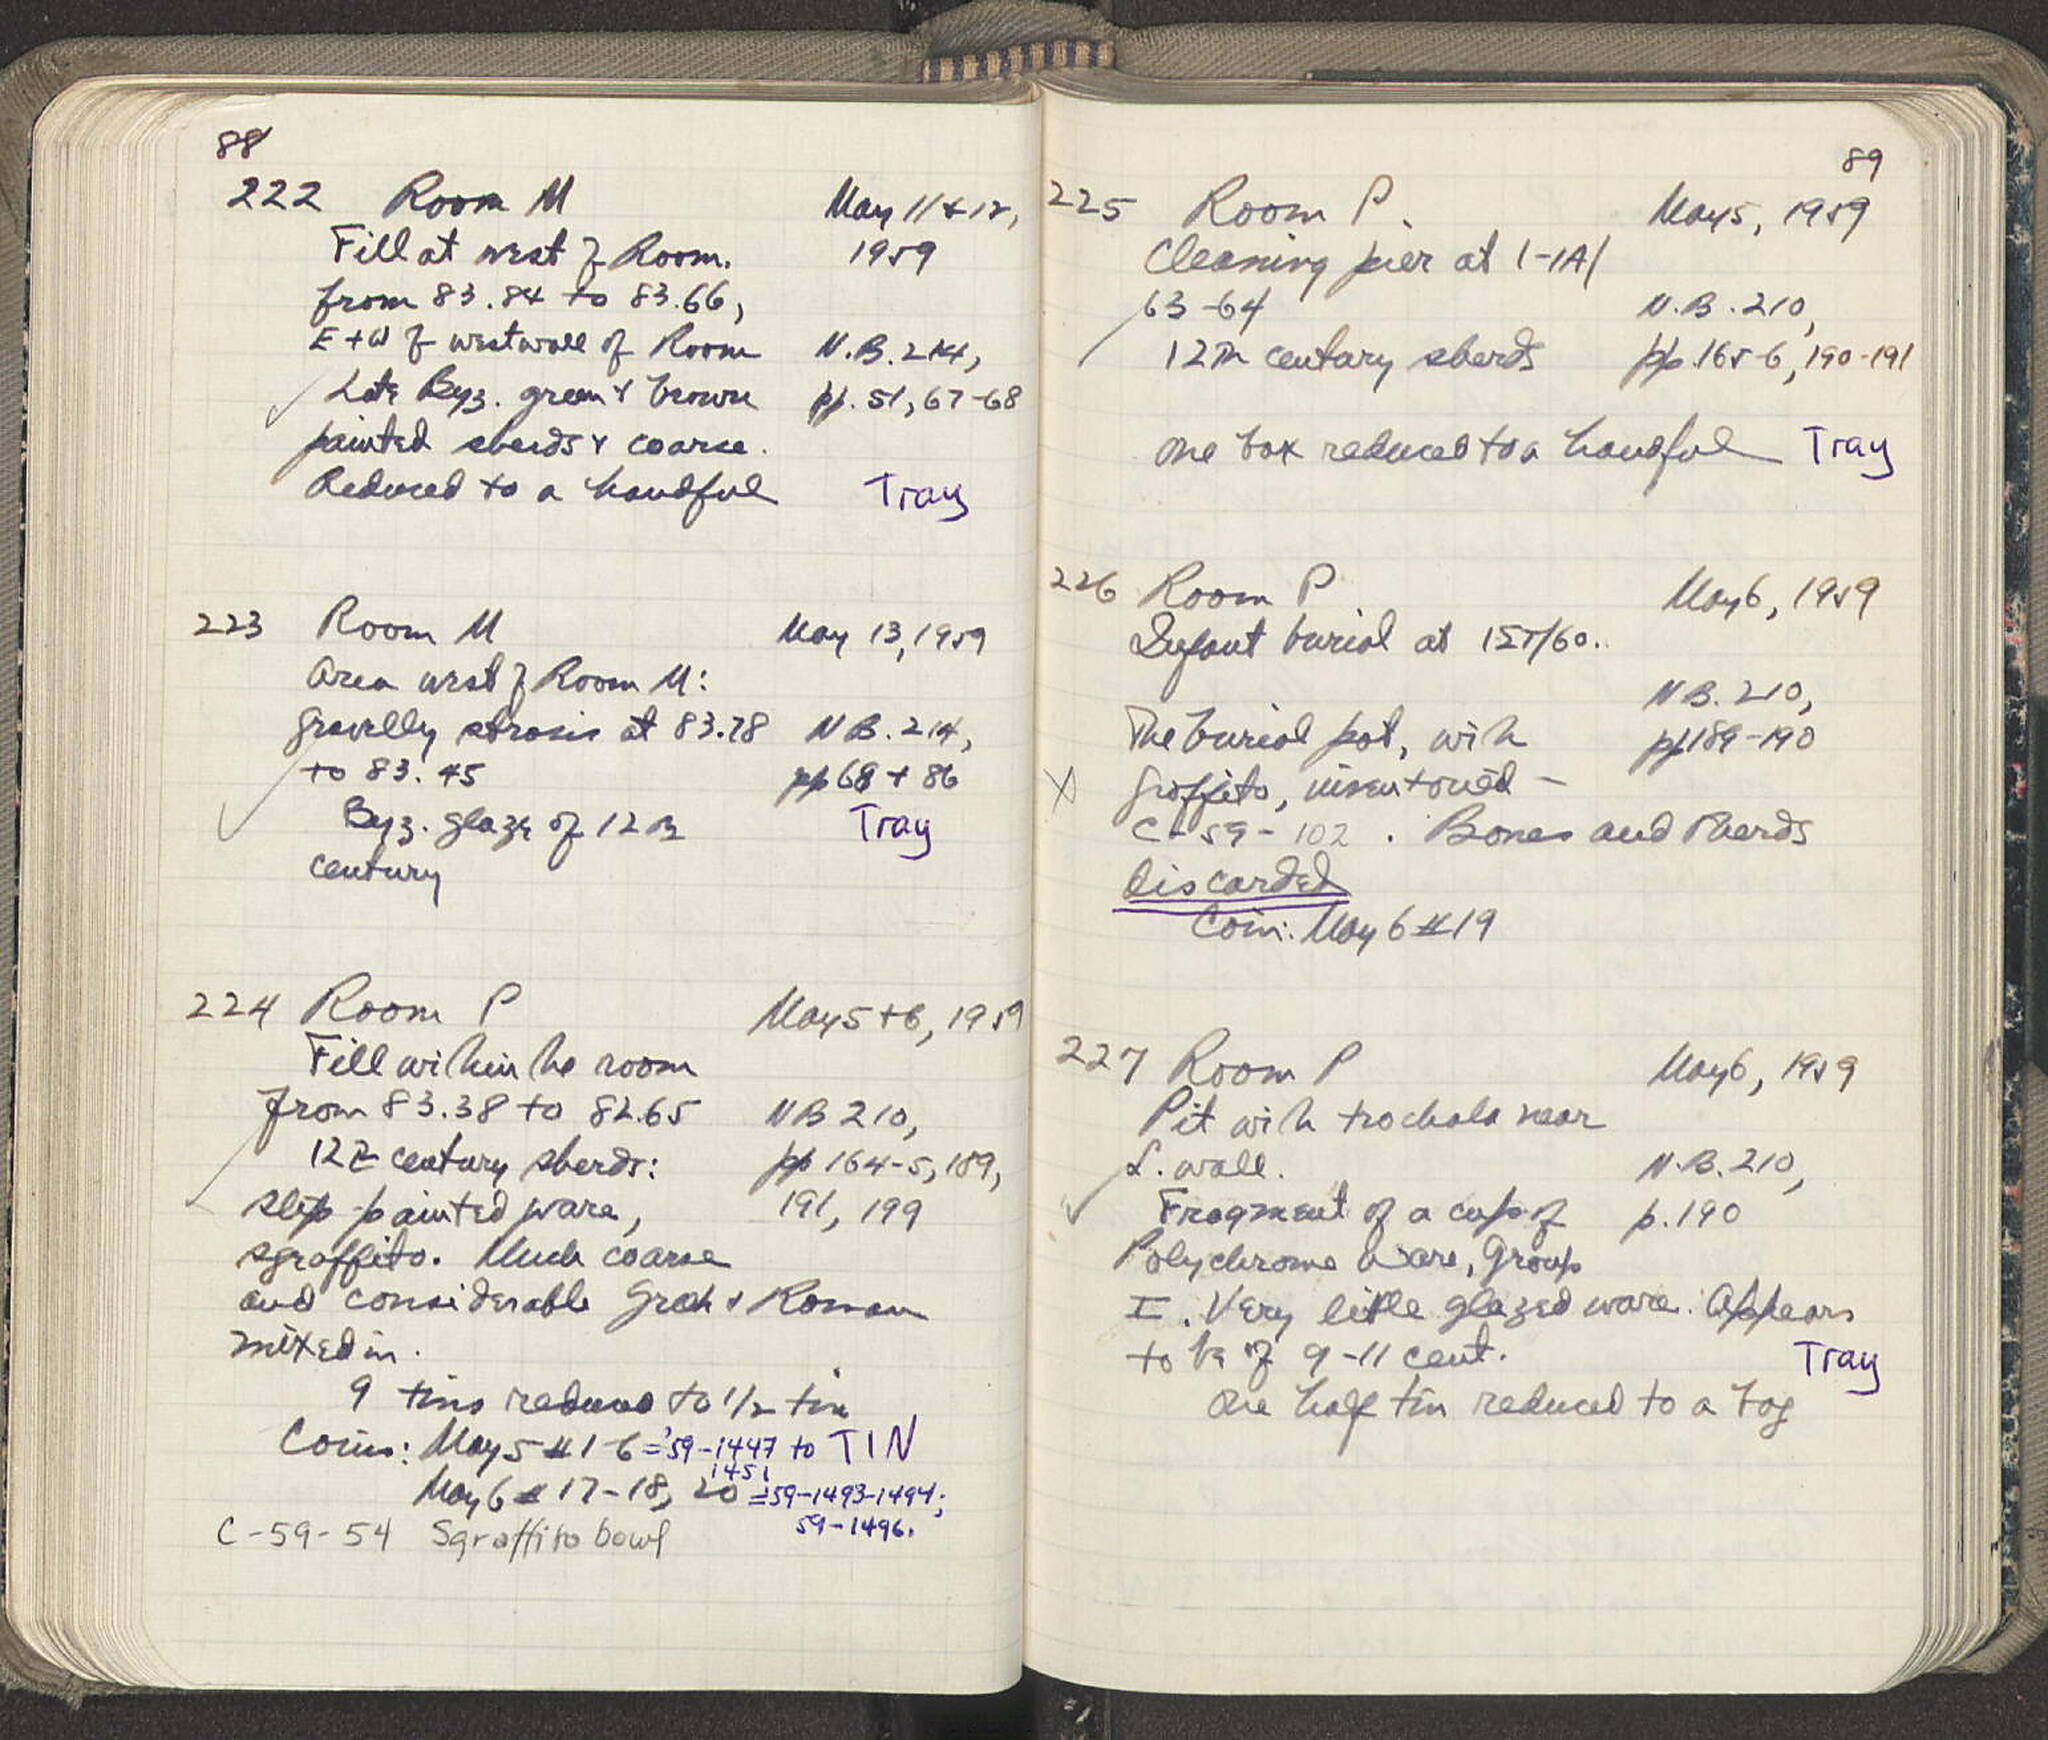 88
222 Room M May 11 & 12,
Fill at west of Room. 1959
from 83.84 to 83.66,
E + W of west wall of Room N.B. 214,
Late Byz. green & brown pp. 51, 67-68
painted sherds & coarse.
Reduced to a handful Tray
223 Room M May 13, 1959
Area west of Room M:
gravelly strosis at 83.78 N B. 214,
to 83.45 pp 68 + 86
Byz. glaze of 12th Tray
century
224 Room P May 5 + 6, 1959
Fill within the room
from 83.38 to 82.65 NB 210,
12th century sherds: pp 164-5, 189,
slip-painted ware, 191, 199
sgraffito. Much coarse
and considerable Greek & Roman
mixed in.
9 tins reduced to 1/2 tin
Coins: May 5 # 1-6 = '59-1447 to TIN
1451
May 6 # 17-18, 20 = '59-1493-1494;
59-1496.
C-59-54 Sgraffito bowl
89
225 Room P. May 5, 1959
Cleaning pier at 1-1A/
63-64 N.B. 210,
12th century sherds pp. 165-6, 190-191
One box reduced to a handful Tray
226 Room P May 6, 1959
Infant burial at 15T/60.
N B. 210,
The burial pot, with pp 189-190
X graffito, inventoried -
C-59-102. Bones and sherds
discarded
Coin: May 6 # 19
227 Room P May 6, 1959
Pit with trochala near
S. wall. N.B. 210,
Fragment of a cup of p. 190
Polychrome Ware, Group
I. Very little glazed ware. Appears
to be of 9-11 cent. Tray
One half tin reduced to a bag